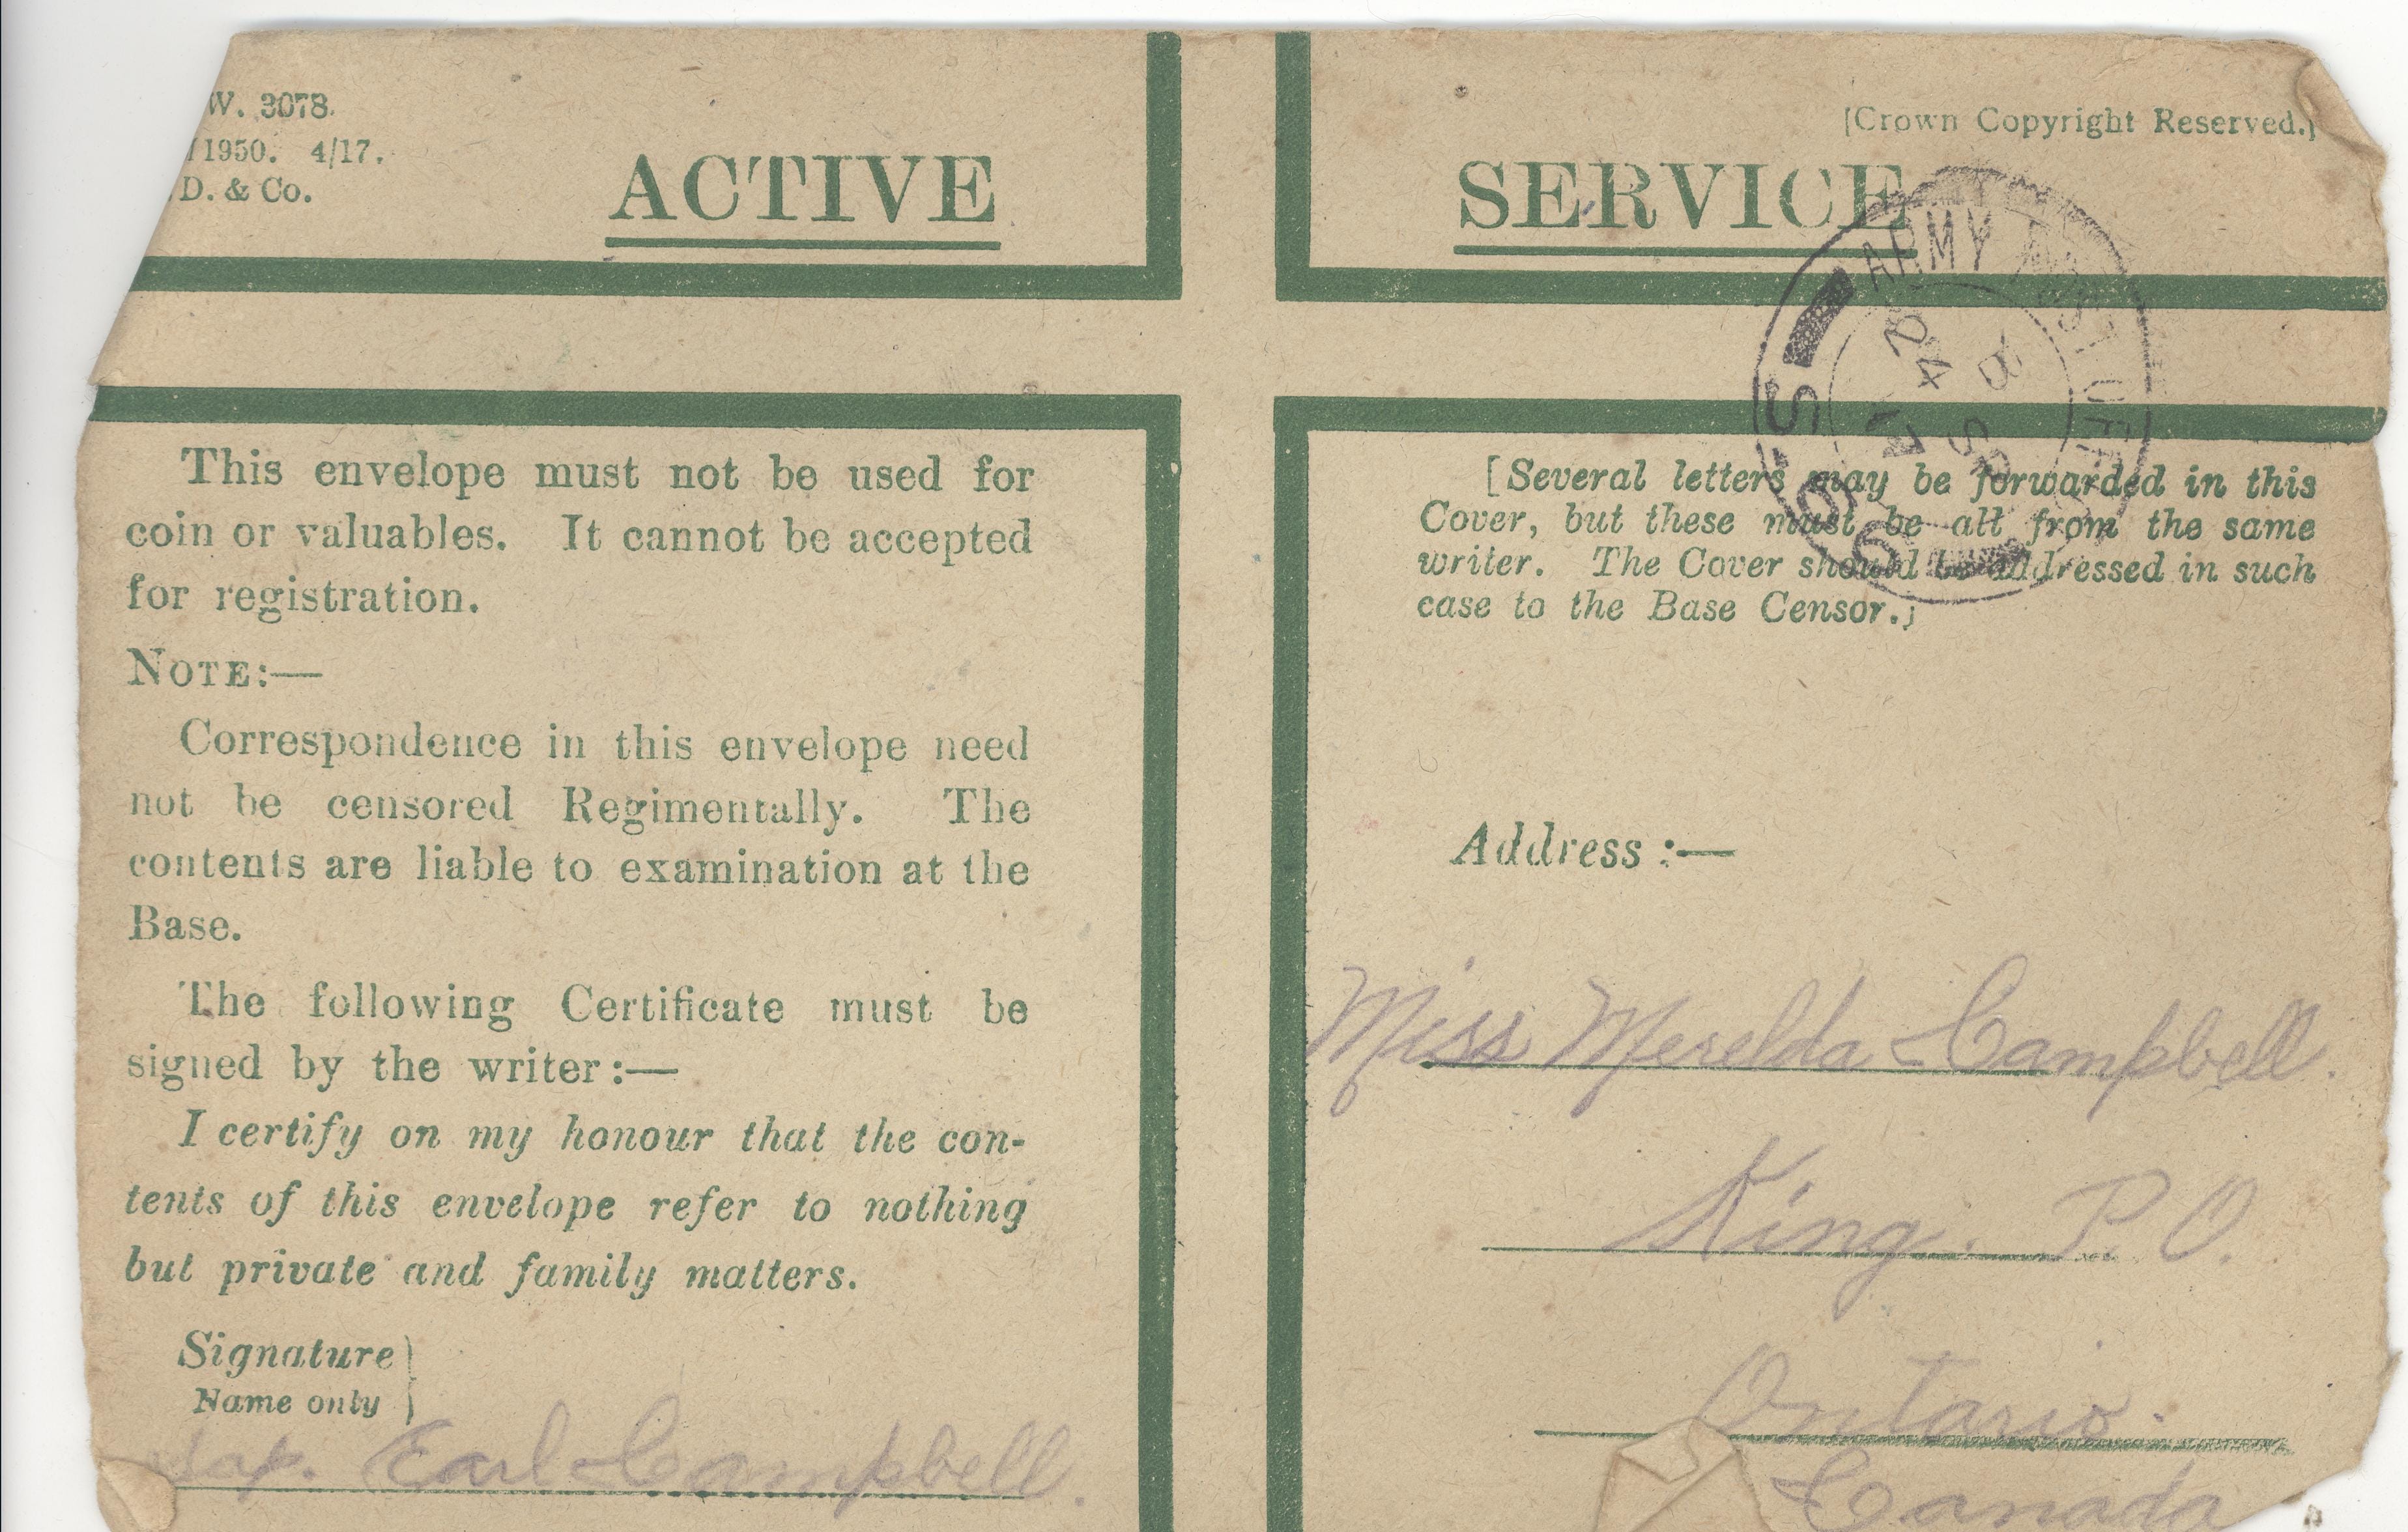 W. 3078.
1950. 4/17.
D. & Co.
[Crown Copyright Reserved.]
ACTIVE SERVICE
ARMY POST OFFICE
This envelope must not be used for
coin or valuables. It cannot be accepted
for registration.
NOTE:—
Correspondence in this envelope need
not be censored Regimentally. The
contents are liable to examination at the
Base.
The following Certificate must be
signed by the writer:—
I certify on my honour that the con-
tents of this envelope refer to nothing
but private and family matters.
Signature
Name only
Sap. Earl Campbell.
[Several letters may be forwarded in this
Cover, but these must be all from the same
writer. The Cover should be addressed in such
case to the Base Censor.]
Address:—
Miss Merelda Campbell.
King. P. O.
Ontario.
Canada